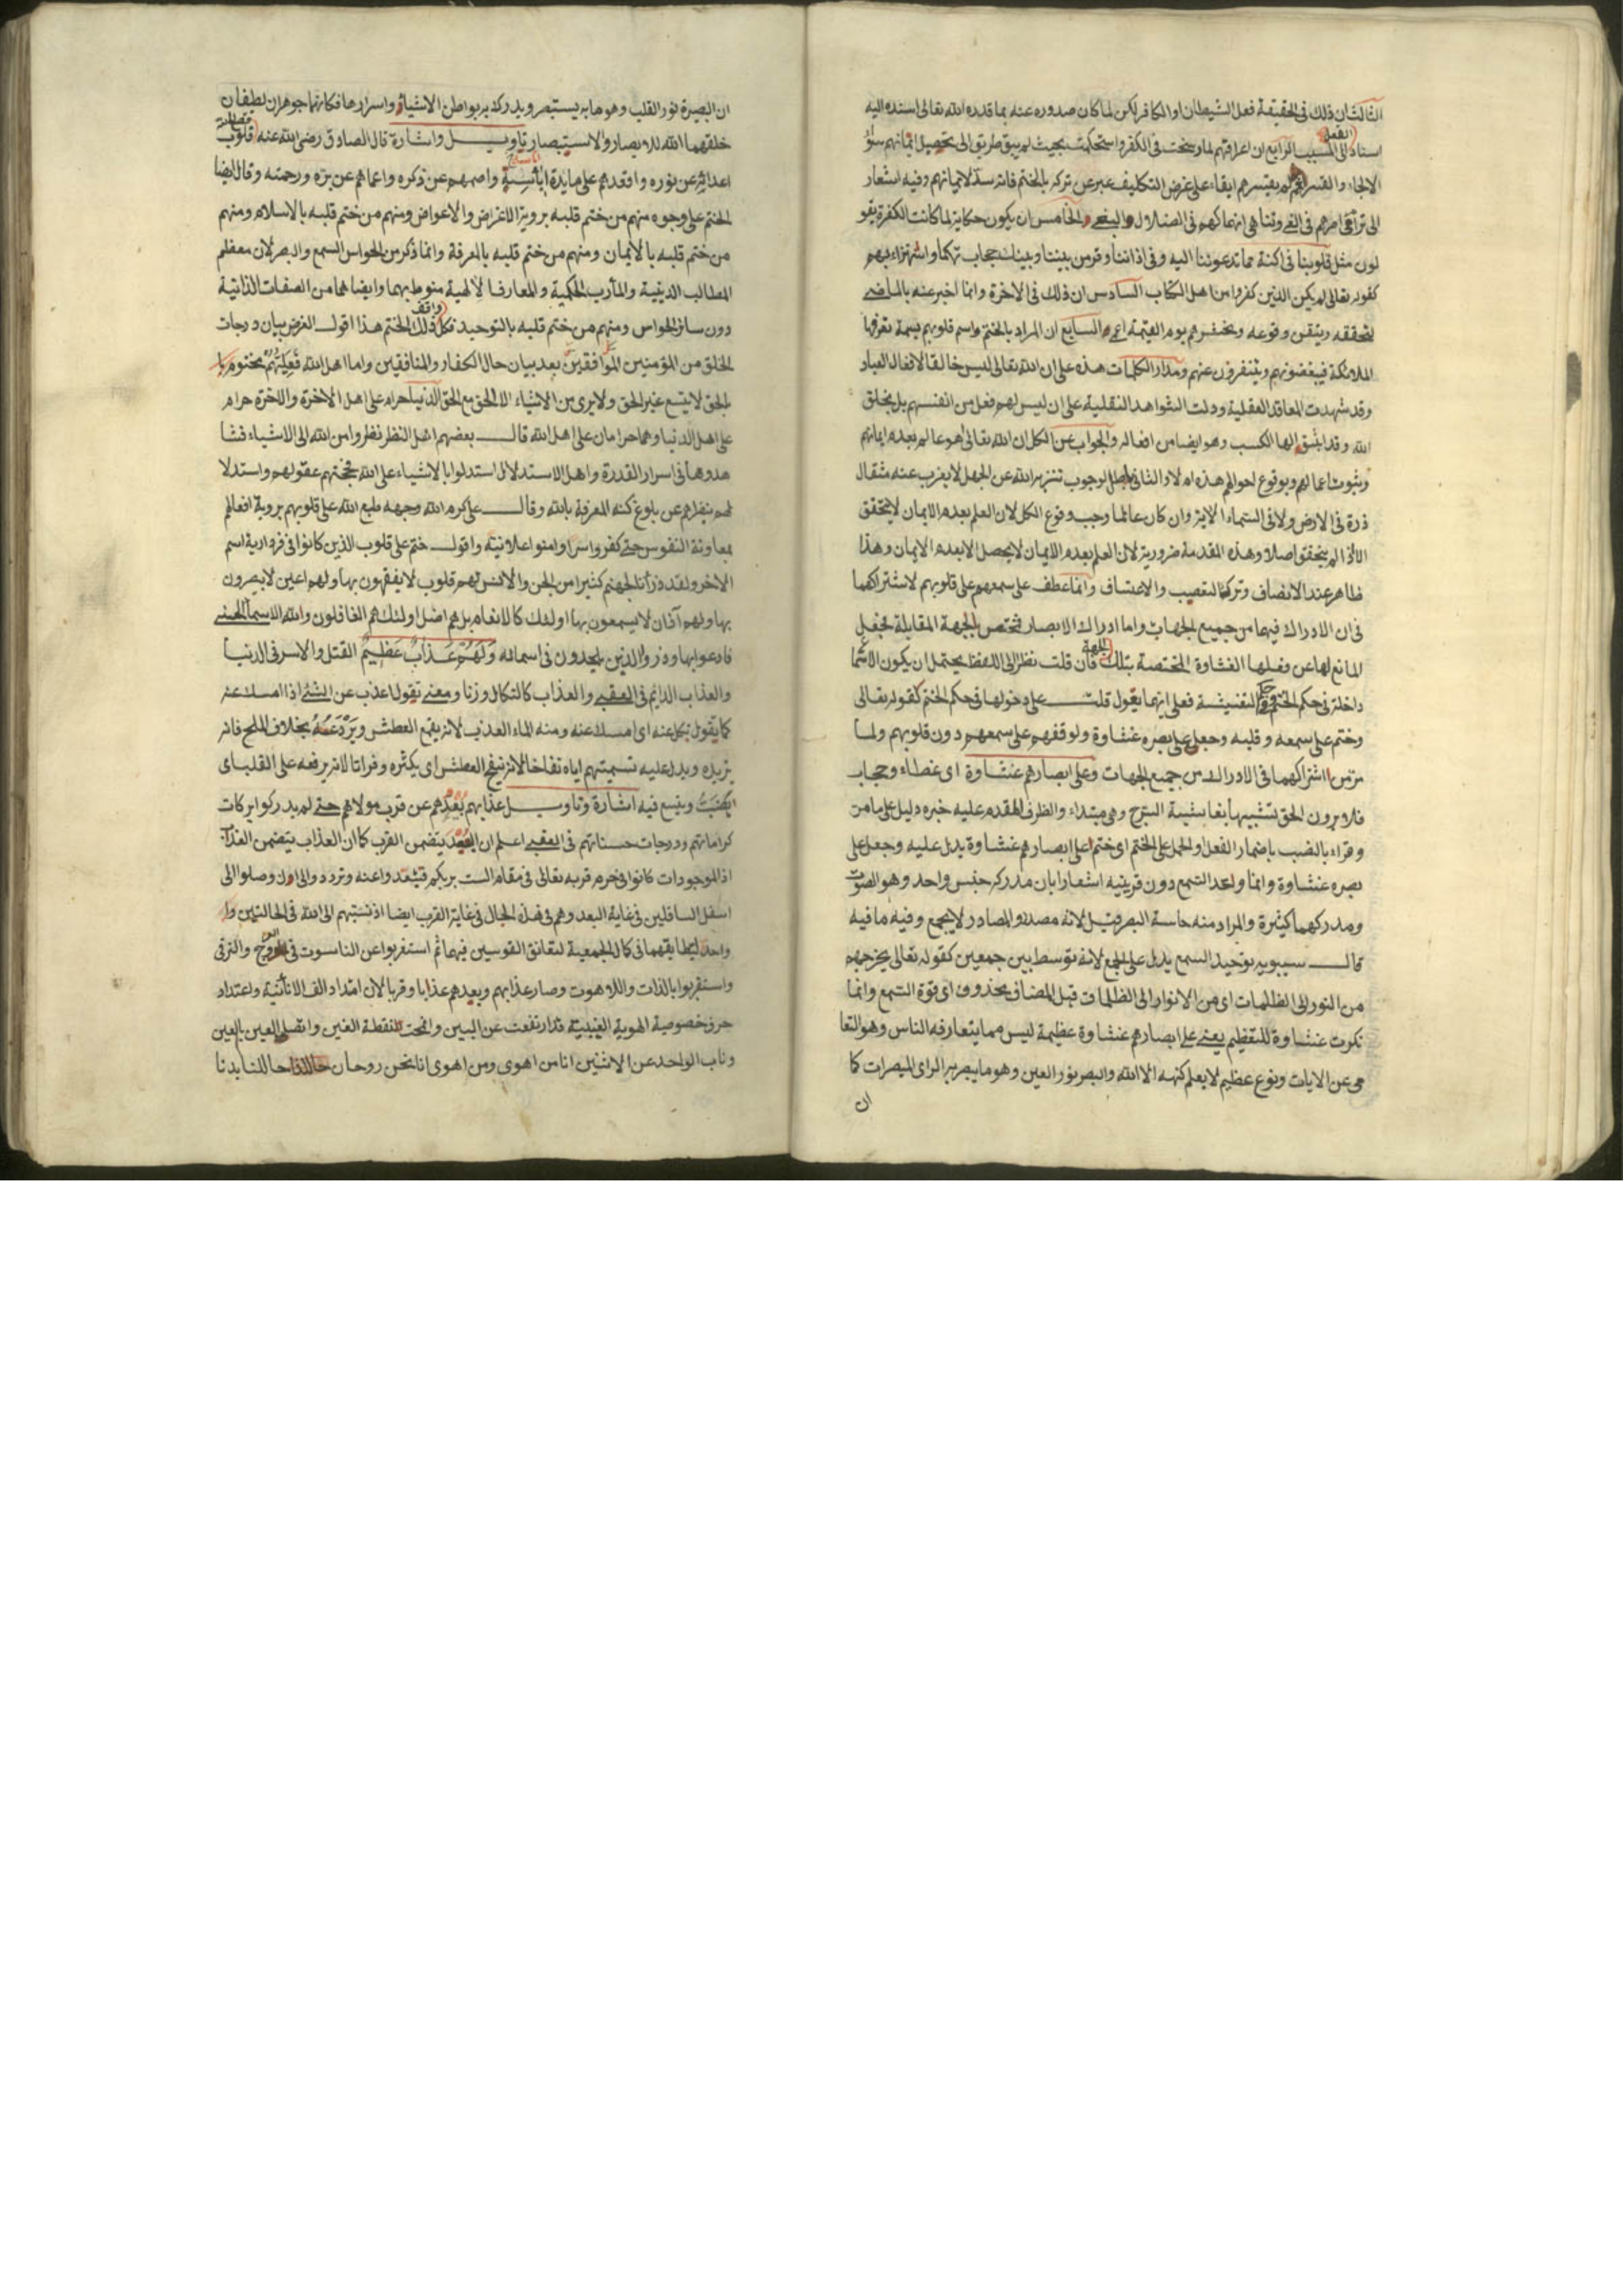 الثالث ان ذلك فى الحقيقة فعل الشيطان او الكافر لكن لما كان صدوره عنه بما قدره الله تعالى اسنده اليه
اسناد الفعل الى المسبب الرابع ان اعراقهم لما رسخت فى الكفر واستحكمت بحيث لم يبق طريق الى تحصيل ايمانهم سوى
الالجاء والقسر ثم لم يقسرهم ابقاء على غرض التكليف عبر عن تركه بالختم فانه سد لايمانهم وفيه اشعار
الى ترقى امرهم فى الغى وتناهى انهماكهم فى الضلال والبغى والخامس ان يكون حكاية لما كانت الكفرة يقو
لون مثل قلوبنا فى اكنة مما تدعوننا اليه وفى اذاننا وقر من بيننا وبينك حجاب تهكما واستهزاء بهم
كقوله تعالى لم يكن الذين كفروا من اهل الكتاب السادس ان ذلك فى الاخرة وانما اخبر عنه بالماضى
لتحققه وتيقن وقوعه ونحشرهم يوم القيمة اعمى السابع ان المراد بالختم واسم قلوبهم بسمة تعرفها
الملائكة فيبغضونهم ويتنفرون عنهم ومدار الكلمات هذه على ان الله تعالى ليس خالقا لافعال العباد
وقد شهدت المعاقد العقلية ودلت الشواهد النقلية على ان ليس لهم فعل من انفسهم بل بخلق
الله وقد الها الكسب وهو ايضا من افعاله والجواب عن الكل ان الله تعالى اهو عالم بعدم ايمانهم
وثبوت اعمالهم وبوقوع احوالهم هذه ام لا والثانى باطل لوجوب تنزيه الله عن الجهل لا يعزب عنه مثقال
ذرة فى الارض ولا فى السماء الاية وان كان عالما وجب وقوع الكل لان العلم بعدم الايمان لا يتحقق
الا اذا لم يتحقق اصلا وهذه المقدمة ضرورية لان العلم بعدم الايمان لا يحصل الا بعدم الايمان وهذا
ظاهر عند الانصاف وترك التعصب والاعتساف وانما عطف على سمعهم على قلوبهم لاشتراكهما
فى ان الادراك فيهما من جميع الجهات واما ادراك الابصار مختص بالجهة المقابلة فجعل
المانع لها عن فعلها الغشاوة المختصة بتلك الجهة فان قلت نظرا الى اللفظ يحتمل ان يكون الاسماع
داخلة فى حكم الختم وفى حكم التغشية فعلى ايهما يقول قلت على دخولها فى حكم الختم كقوله تعالى
وختم على سمعه وقلبه وجعل على بصره غشاوة ولوقفهم على سمعهم دون قلوبهم ولما
مر من اشتراكهما فى الادراك من جميع الجهات وعلى ابصارهم غشاوة اى غطاء وحجاب
فلا يرون الحق تشبيها بغاشية السرج وهى مبتداء والظرف المقدم عليه خبره دليل على ما من
وقراء بالنصب باضمار الفعل او الحمل على الختم اى ختم على ابصارهم غشاوة يدل عليه وجعل على
بصره غشاوة وانما واحد السمع دون قرينيه اشعارا بان مدركه جنس واحد وهو الصوت
ومدركهما كثيرة والمراد منه حاسة البصر وقيل لانه مصدر والمصادر لا يجمع وفيه ما فيه
قال سيبويه توحيد السمع يدل على الجمع لانه توسط بين جمعين كقوله تعالى يخرجهم
من النور الى الظلمات اى من الانوار الى الظلمات قبل المضاف محذوف اى قوة السمع وانما
نكرت غشاوة للتعظيم يعنى على ابصارهم غشاوة عظيمة ليس مما يتعارفه الناس وهو التعا
مى عن الايات ونوع عظيم لا يعلم كنهه الا الله والبصر نور العين وهو ما يبصر به الراى المبصرات كا
ان
ان البصيرة نور القلب وهو ما به يستبصر ويدرك به بواطن الاشياء واسرارها فكانهما جوهران لطيفان
خلقهما الله للابصار والاستبصار تاويل واشارة قال الصادق رضى الله عنه قلوب
اعدائه عن نوره وافقدهم على مايدة واصمهم عن ذكره واعماهم عن بره ورحمته وقال ايضا
الختم على وجوه منهم من ختم قلبه برؤية الاغراض والاعواض ومنهم من ختم قلبه بالاسلام ومنهم
من ختم قلبه بالايمان ومنهم من ختم قلبه بالمعرفة وانما ذكر من الحواس السمع والبصر لان معظم
المطالب الدينية والمأرب الحكمية والمعارف الالهية منوط بهما وايضا هما من الصفات الذاتية
دون سائر الحواس ومنهم من ختم قلبه بالتوحيد فكل واقف ذلك الختم هذا اقول الغرض بيان درجات
الخلق من المؤمنين الموافقين بعد بيان حال الكفار والمنافقين واما اهل الله مختوم
بالحق لا يتسع غير الحق ولا يرى من الاشياء الا الحق مع الحق الدنيا حرام على اهل الاخرة والاخرة حرام
على اهل الدنيا وهما حرامان على اهل الله قال بعضهم اهل النظر نظروا من الله الى الاشياء فشا
هدوها فى اسرار القدرة واهل الاستدلال استدلوا بالاشياء على الله عقولهم واستدلا
لهم عن بلوغ كنه المعرفة بالله وقال على كرم الله وجهه طبع الله على قلوبهم برؤية افعالهم
بمعاونة النفوس حتى كفروا سرا وامنوا علانية واقول ختم على قلوب الذين كانوا فى فردارية اسم
الاخر ولقد ذرأنا لجهنم كثيرا من الجن والانس لهم قلوب لا يفقهون بها ولهم اعين لا يبصرون
بها ولهم آذان لا يسمعون بها اولئك كالانعام بل هم اضل اولئك هم الغافلون ولله الاسماء الحسنى
فادعوه بها وذروا الذين يلحدون فى اسمائه ولهم عذاب عظيم القتل والاسر فى الدنيا
والعذاب الدايم فى العقبى والعذاب كالنكال وزنا ومعنى تقول اعذب عن الشئ اذا امسك عنه
كما يقول نكل عنه اى امسك عنه ومنه الماء العذب لانه يقمع العطش ويردعه بخلاف الملح فانه
يزيده ويدل عليه تسميتهم اياه نقاخا لانه ينقخ العطش اى يكثره وفراتا لانه يرفعه على القلب اى
ويتسع فيه اشارة وتاويل عذابهم بعدهم عن قرب مولاهم حتى لم يدركوا بركات
كراماتهم ودرجات حسناتهم فى العقبى اعلم ان البعد يتضمن القرب كما ان العذاب يتضمن العذاب
اذ الموجودات كانوا فى حرم قربه تعالى فى مقام الست بربكم فبعدوا عنه وتردد والى ان وصلوا الى
اسفل السافلين فى غاية البعد وهم فى هذه الحال فى غاية القرب ايضا اذ نسبتهم الى الله فى الحالتين وا
واحد لتطابقهما فى كمال الجمعية لتعانق القوسين فيهما ثم استغربوا عن الناسوت فى العروج والترقى
واستقربوا بالذات واللاهوت وصار عذابهم وبعدهم عذابا وقربا لان امتداد الف الانائية واعتداد
حرف خصوصية الهوية الغيبية قد ارتفعت عن البين وانمحت النقطة الغين واتصل العين بالعين
وناب الواحد عن الاثنين انا من اهوى ومن اهوى انا نحن روحان حللنا بدنا